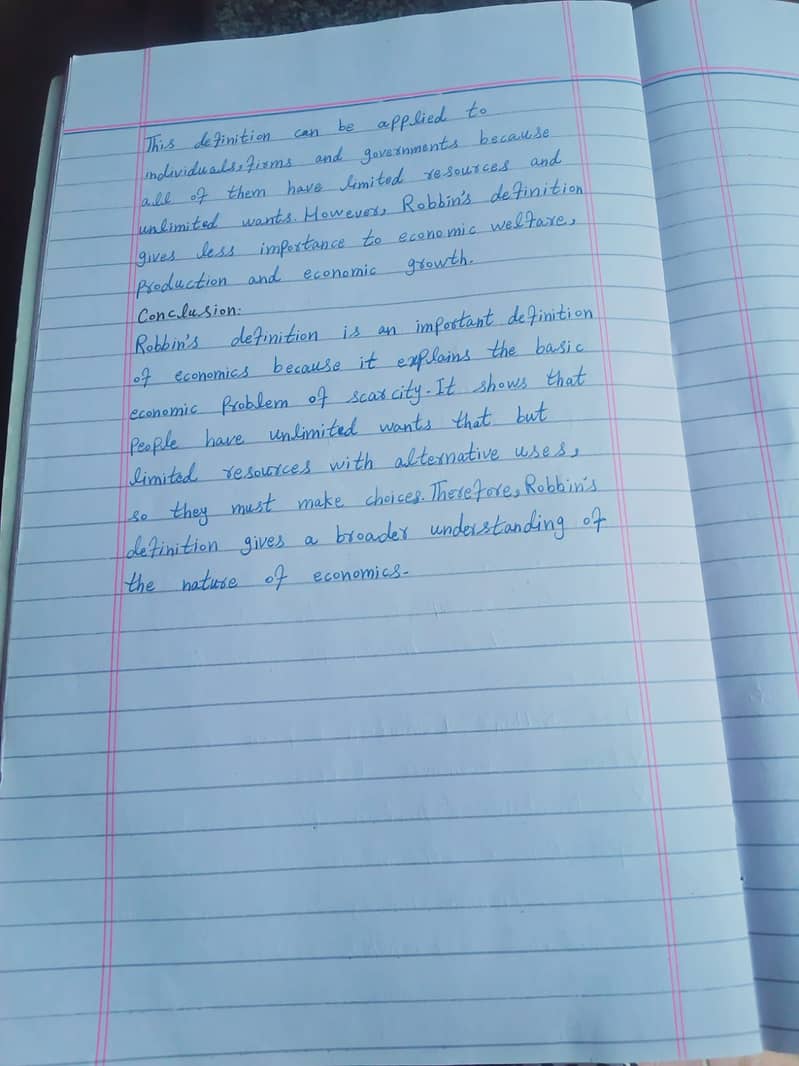 This definition can be applied to
individuals, firms and governments because
all of them have limited resources and
unlimited wants. However, Robbin's definition
gives less importance to economic welfare,
production and economic growth.
Conclusion:
Robbin's definition is an important definition
of economics because it explains the basic
economic problem of scarcity. It shows that
people have unlimited wants that but
limited resources with alternative uses,
so they must make choices. Therefore, Robbin's
definition gives a broader understanding of
the nature of economics.